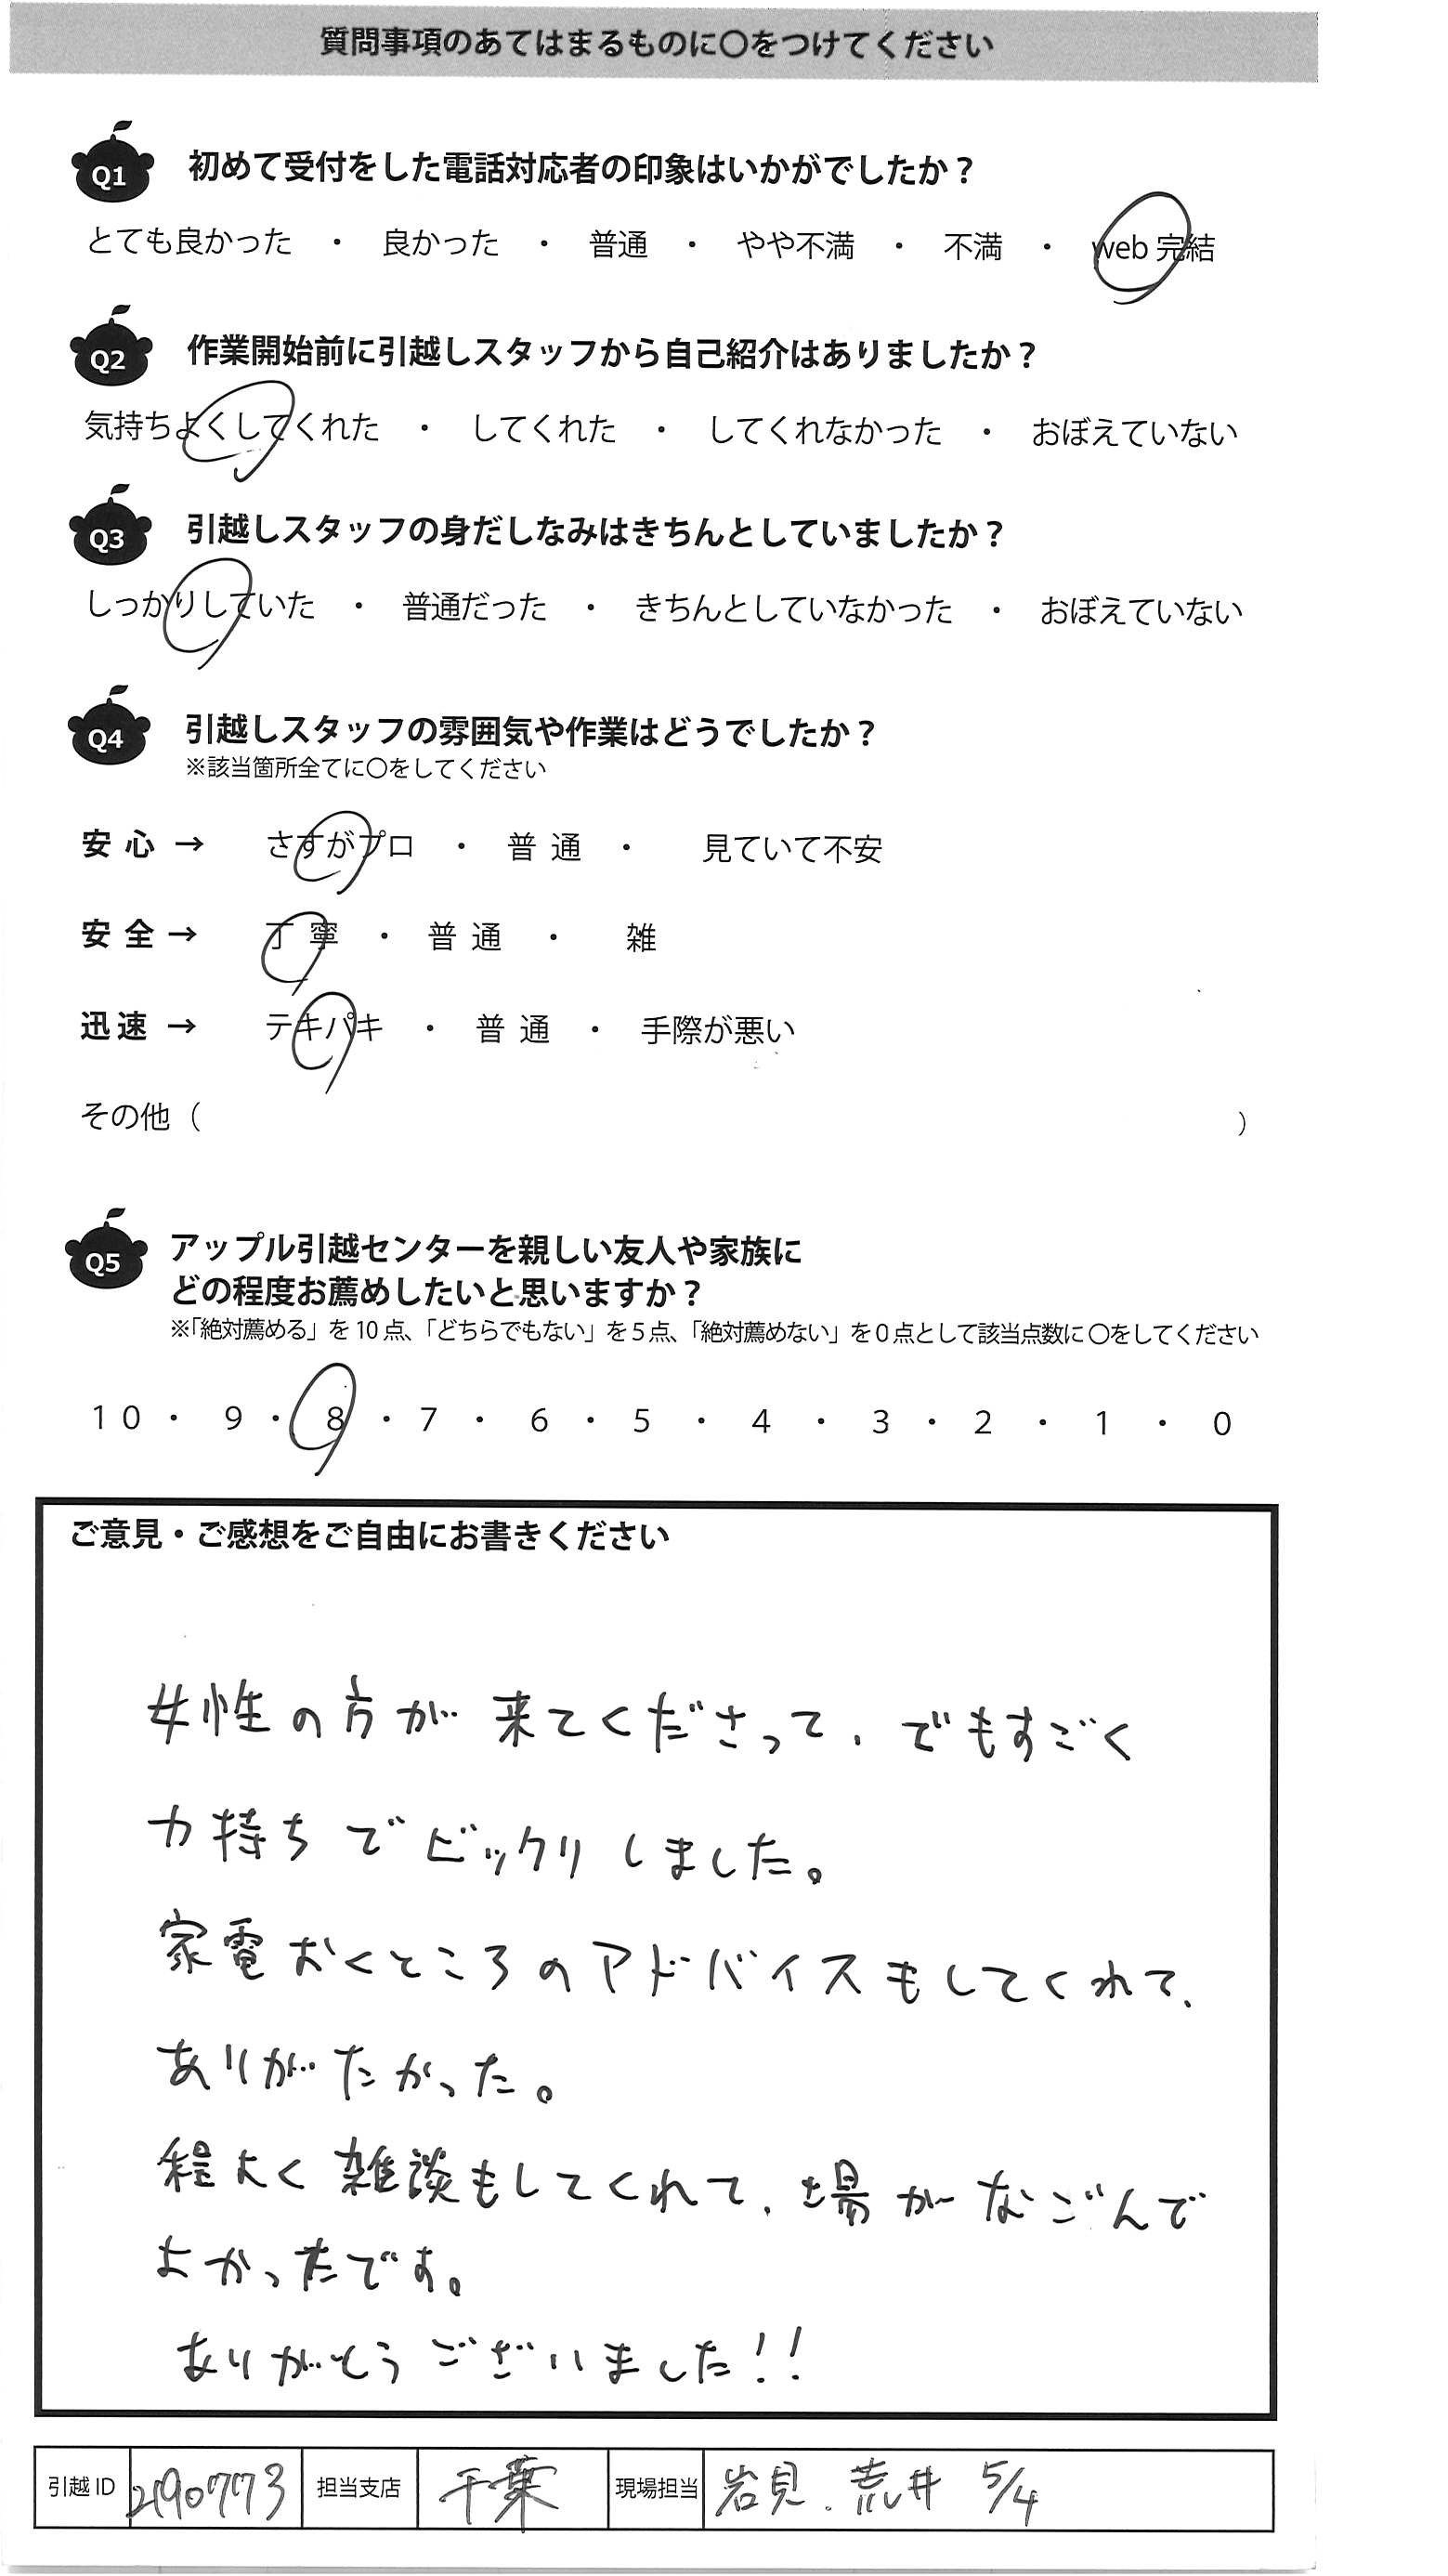 質問事項のあてはまるものに〇をつけてください
Q1 初めて受付をした電話対応者の印象はいかがでしたか？
とても良かった ・ 良かった ・ 普通 ・ やや不満 ・ 不満 ・ web 完結
Q2 作業開始前に引越しスタッフから自己紹介はありましたか？
気持ちよくしてくれた ・ してくれた ・ してくれなかった ・ おぼえていない
Q3 引越しスタッフの身だしなみはきちんとしていましたか？
しっかりしていた ・ 普通だった ・ きちんとしていなかった ・ おぼえていない
Q4 引越しスタッフの雰囲気や作業はどうでしたか？
※該当箇所全てに〇をしてください
安心 → さすがプロ ・ 普通 ・ 見ていて不安
安全 → 丁寧 ・ 普通 ・ 雑
迅速 → テキパキ ・ 普通 ・ 手際が悪い
その他（ ）
Q5 アップル引越センターを親しい友人や家族に
どの程度お薦めしたいと思いますか？
※「絶対薦める」を10点、「どちらでもない」を5点、「絶対薦めない」を0点として該当点数に〇をしてください
10 ・ 9 ・ 8 ・ 7 ・ 6 ・ 5 ・ 4 ・ 3 ・ 2 ・ 1 ・ 0
ご意見・ご感想をご自由にお書きください
女性の方が来てくださって、でもすごく
力持ちでビックリしました。
家電おくところのアドバイスもしてくれて、
ありがたかった。
程よく雑談もしてくれて、場がなごんで
よかったです。
ありがとうございました!!
引越ID 2190773 担当支店 千葉 現場担当 岩見、荒井 5/4